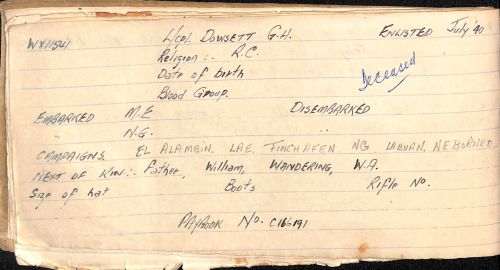 WX11541 L/cpl. DOWSETT G.H. ENLISTED July '40
Religion :- R.C.
Date of birth
Deceased
Blood Group.
EMBARKED M.E DISEMBARKED
" N.G.
CAMPAIGNS. EL ALAMEIN. LAE, FINCHAFEN. NG LABUAN, NE BORNEO
NEXT OF KIN:- Father, William, WANDERING, W.A.
Size of hat Boots Rifle No.
PAYBOOK No. C166191